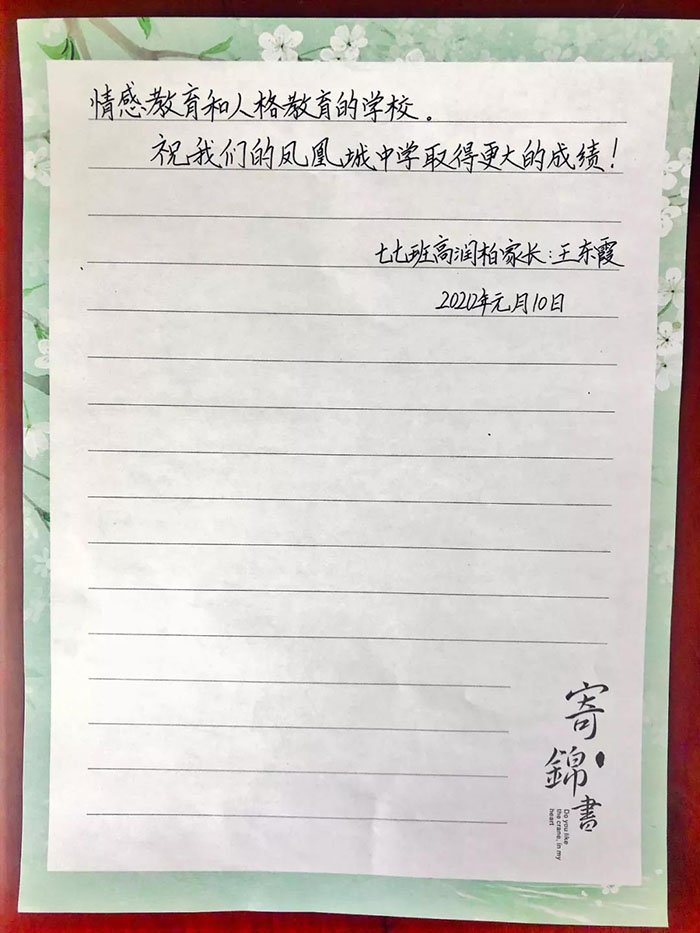 情感教育和人格教育的学校。
祝我们的凤凰城中学取得更大的成绩！
七七班高润柏家长：王东霞
2021年元月10日
寄錦書
Do you like
the crane, in my
heart